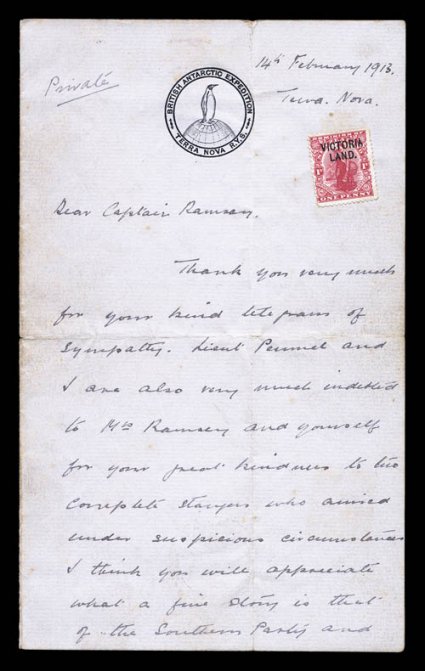 14th February 1913.
Private
BRITISH ANTARCTIC EXPEDITION
TERRA NOVA R.Y.S.
Terra. Nova.
VICTORIA
LAND.
1D 1D
ONE PENNY
Dear Captain Ramsey.
Thank you very much
for your kind telegram of
Sympathy. Lieut Pennel and
I are also very much indebted
to Mrs Ramsey and yourself
for your great kindness to two
Complete stangers who arrived
under suspicious circumstances
I think you will appreciate
what a fine story is that
of the Southern Party and